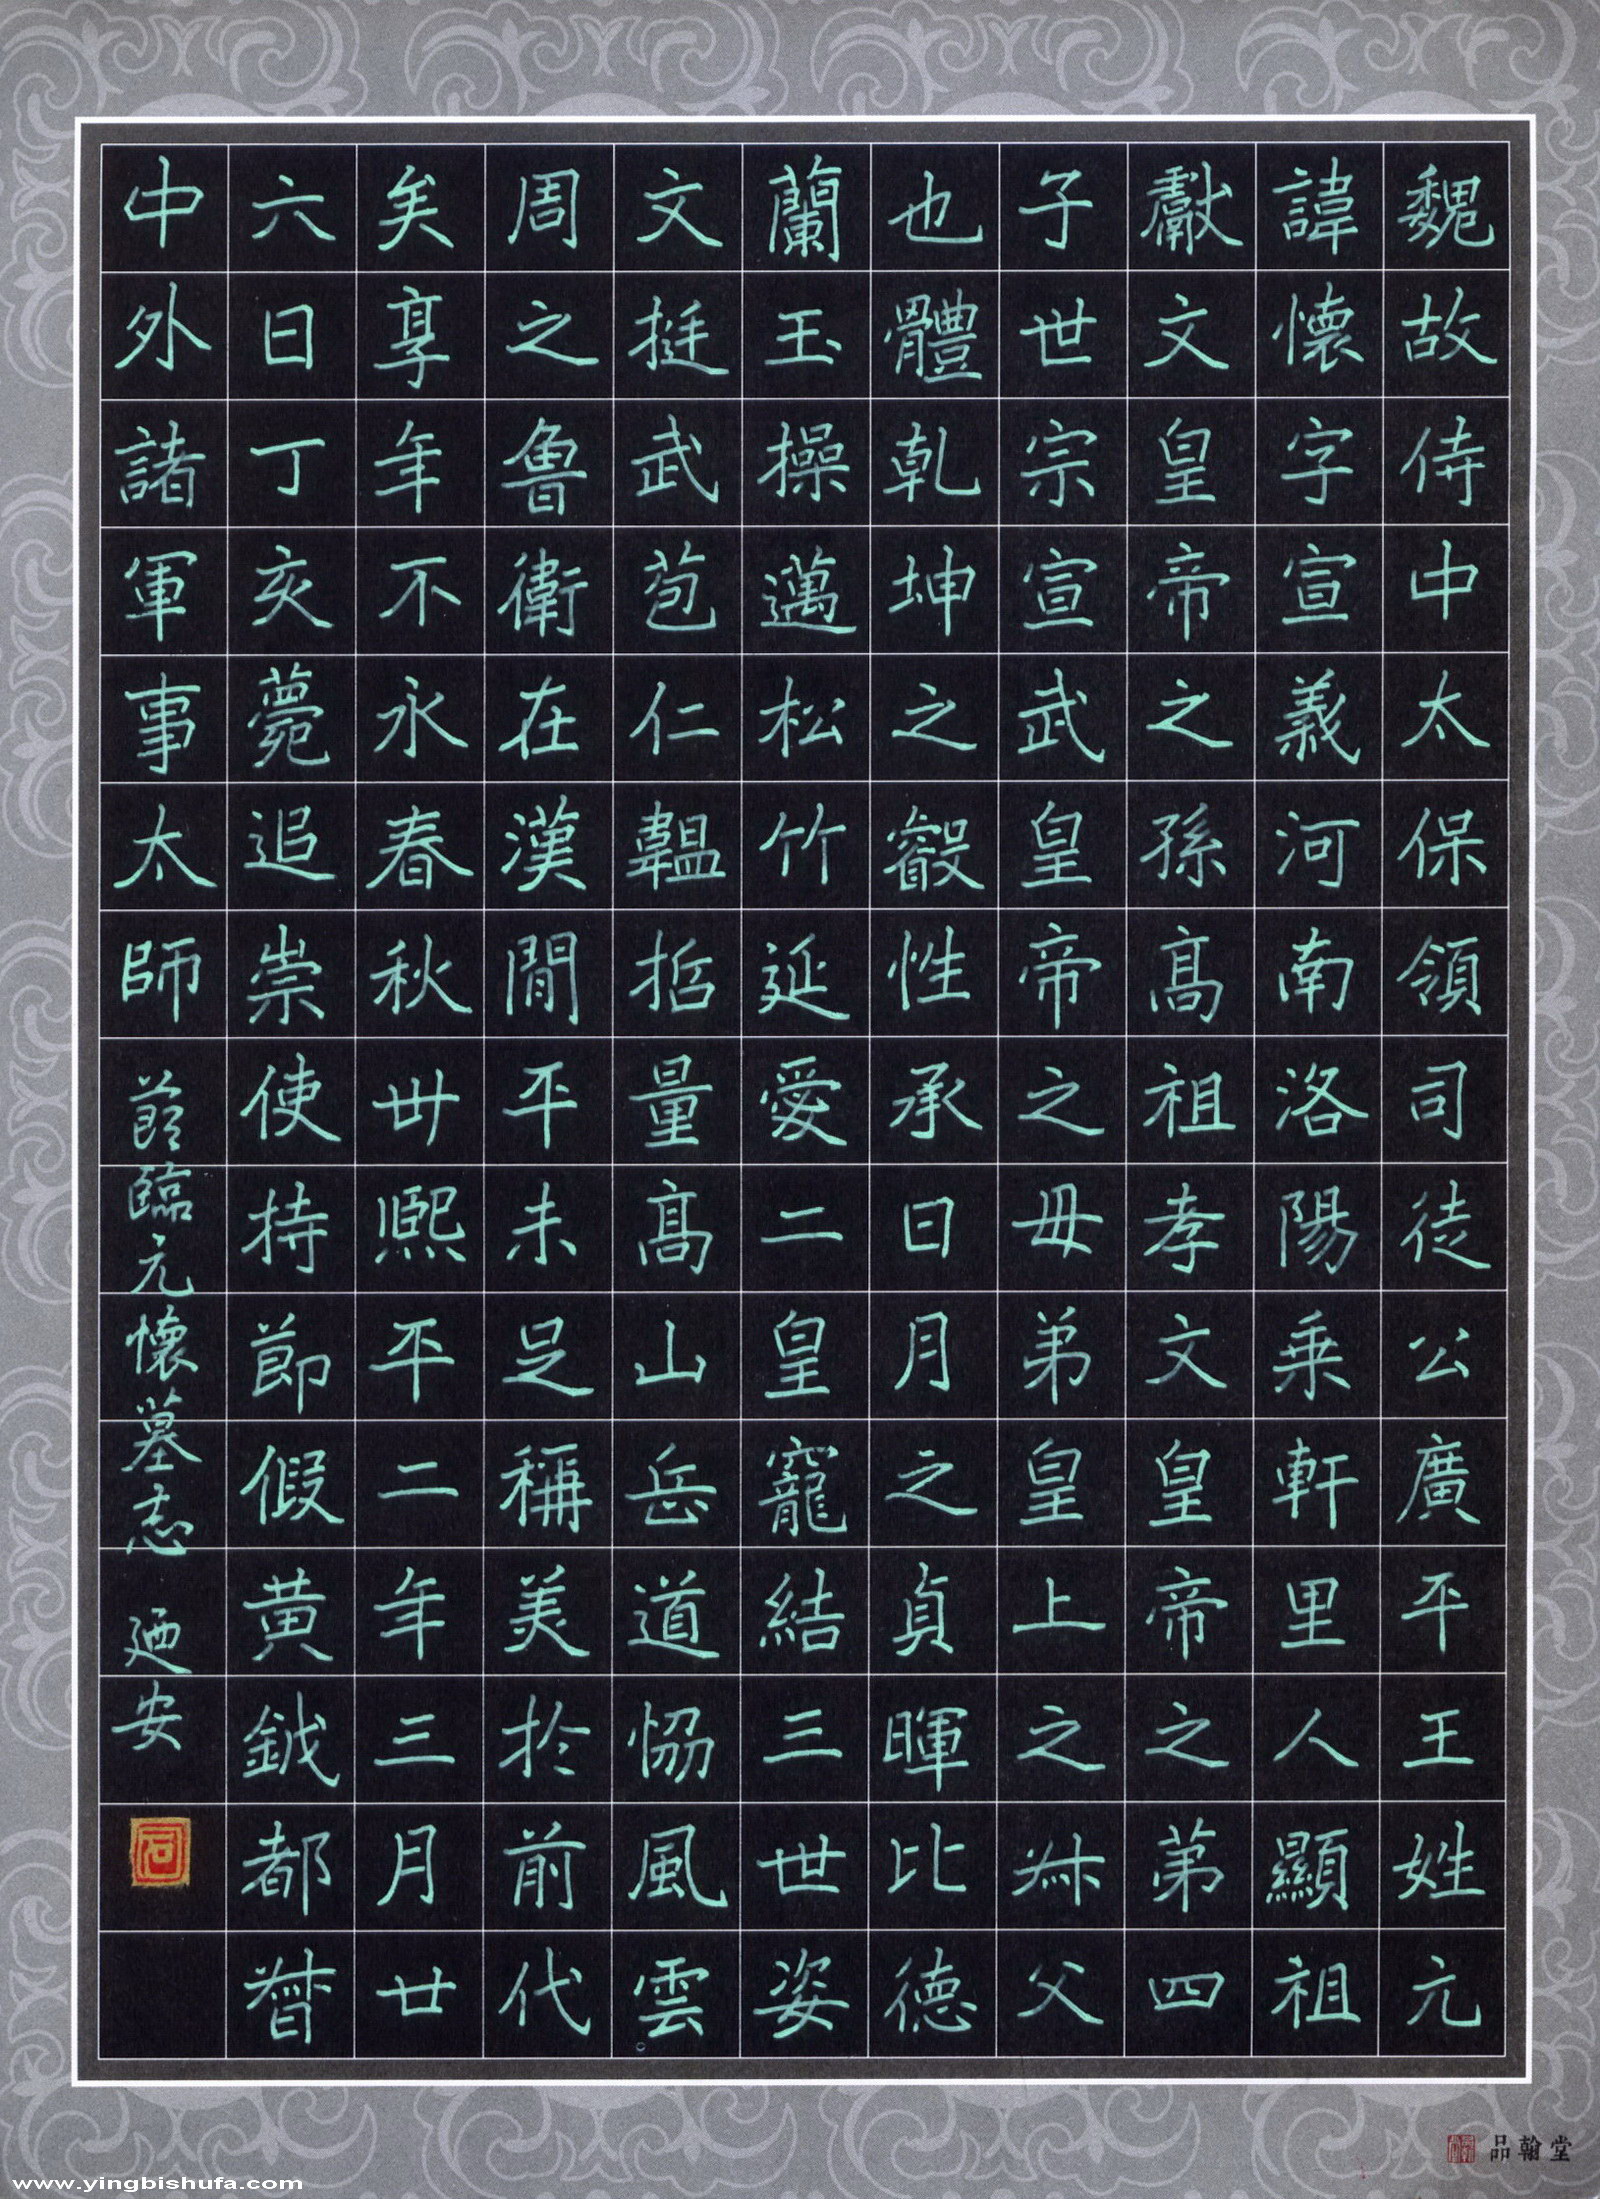 魏故侍中太保領司徒公廣平王姓元
諱懷字宣義河南洛陽乗軒里人顯祖
獻文皇帝之孫髙祖孝文皇帝之苐四
子世宗宣武皇帝之母弟皇上之叔父
也體乾坤之叡性承日月之貞暉比德
蘭玉操邁松竹延愛二皇寵結三世姿
文挺武苞仁韞哲量髙山岳道恊風雲
周之魯衛在漢閒平未足稱美於前代
矣享年不永春秋卅熙平二年三月廿
六日丁亥薨追崇使持節假黄鉞都督
中外諸軍事太師
節臨元懷墓志 廼安
品翰堂
www.yingbishufa.com